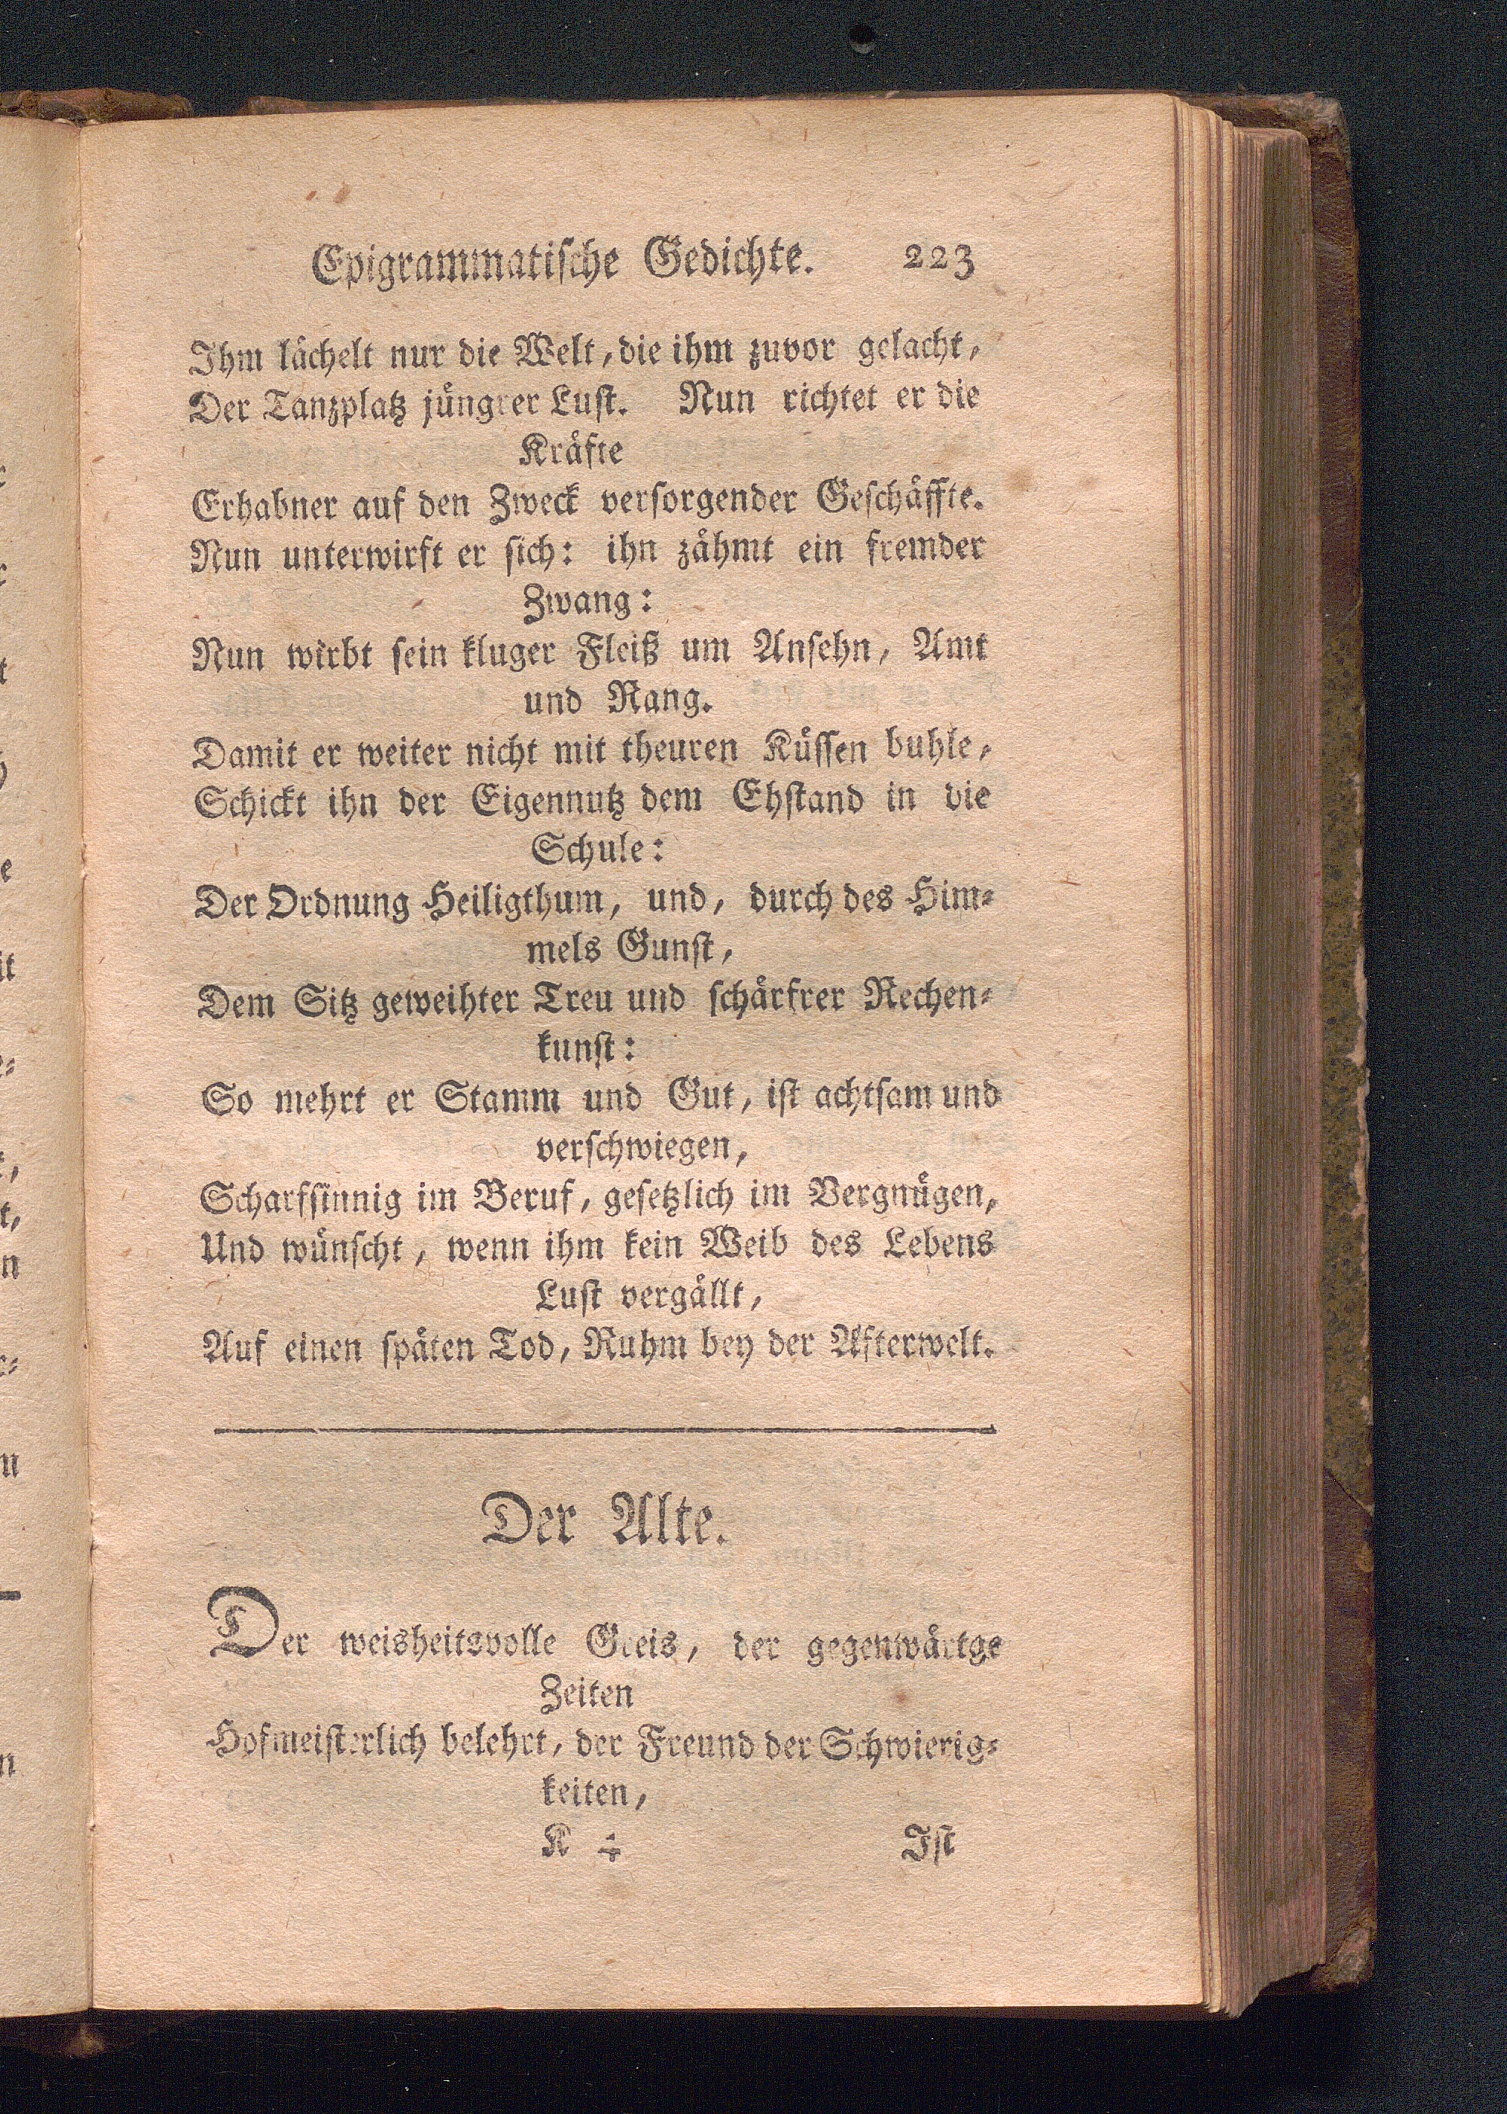 Epigrammatiſche Gedichte. 223
Ihm lächelt nur die Welt, die ihm zuvor gelacht,
Der Tanzplatz jüngrer Luſt. Nun richtet er die
Kräfte
Erhabner auf den Zweck verſorgender Geſchäffte.
Nun unterwirft er ſich: ihn zähmt ein fremder
Zwang:
Nun wirbt ſein kluger Fleiß um Anſehn, Amt
und Rang.
Damit er weiter nicht mit theuren Küſſen buhle,
Schickt ihn der Eigennutz dem Ehſtand in die
Schule:
Der Ordnung Heiligthum, und, durch des Him-
mels Gunſt,
Dem Sitz geweihter Treu und ſchärfrer Rechen-
kunſt:
So mehrt er Stamm und Gut, iſt achtſam und
verſchwiegen,
Scharfſinnig im Beruf, geſetzlich im Vergnügen,
Und wünſcht, wenn ihm kein Weib des Lebens
Luſt vergällt,
Auf einen ſpäten Tod, Ruhm bey der Afterwelt.
Der Alte.
Der weisheitsvolle Greis, der gegenwärtge
Zeiten
Hofmeiſterlich belehrt, der Freund der Schwierig-
keiten,
K 4 Iſt